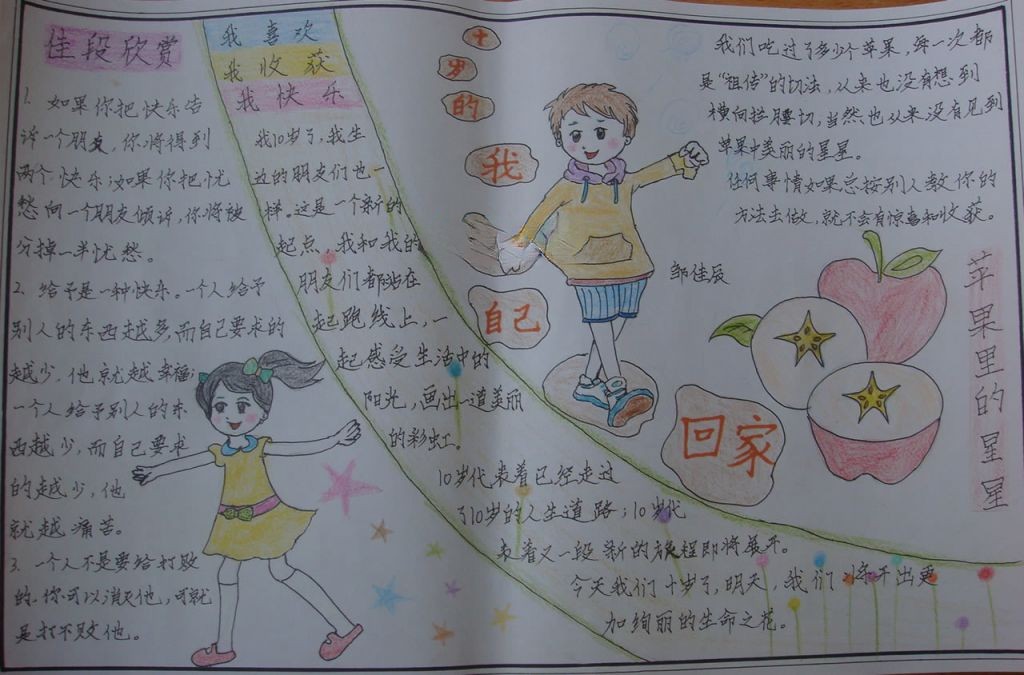 佳段欣赏
1. 如果你把快乐告
诉一个朋友，你将得到
两个快乐；如果你把忧
愁向一个朋友倾诉，你将被
分掉一半忧愁。
2. 给予是一种快乐。一个人给予
别人的东西越多，而自己要求的
越少，他就越幸福；
一个人给予别人的东
西越少，而自己要求
的越少，他
就越痛苦。
3. 一个人不是要给打败
的。你可以消灭他，可就
是打不败他。
我喜欢
我收获
我快乐
我10岁了，我生
边的朋友们也一
样。这是一个新的
起点，我和我的
朋友们都站在
起跑线上，一
起感受生活中的
阳光，画出一道美丽
的彩虹。
10岁代表着已经走过
了10岁的人生道路；10岁代
表着又一段新的旅程即将展开。
今天我们十岁了，明天，我们将开出更
加绚丽的生命之花。
十
岁
的
我
自己
回家
邹佳辰
我们吃过了多少个苹果，每一次都
是“祖传”的切法，从来也没有想到
横向拦腰切，当然，也从来没有见到
苹果中美丽的星星。
任何事情如果总按别人教你的
方法去做，就不会有惊喜和收获。
苹果里的星星